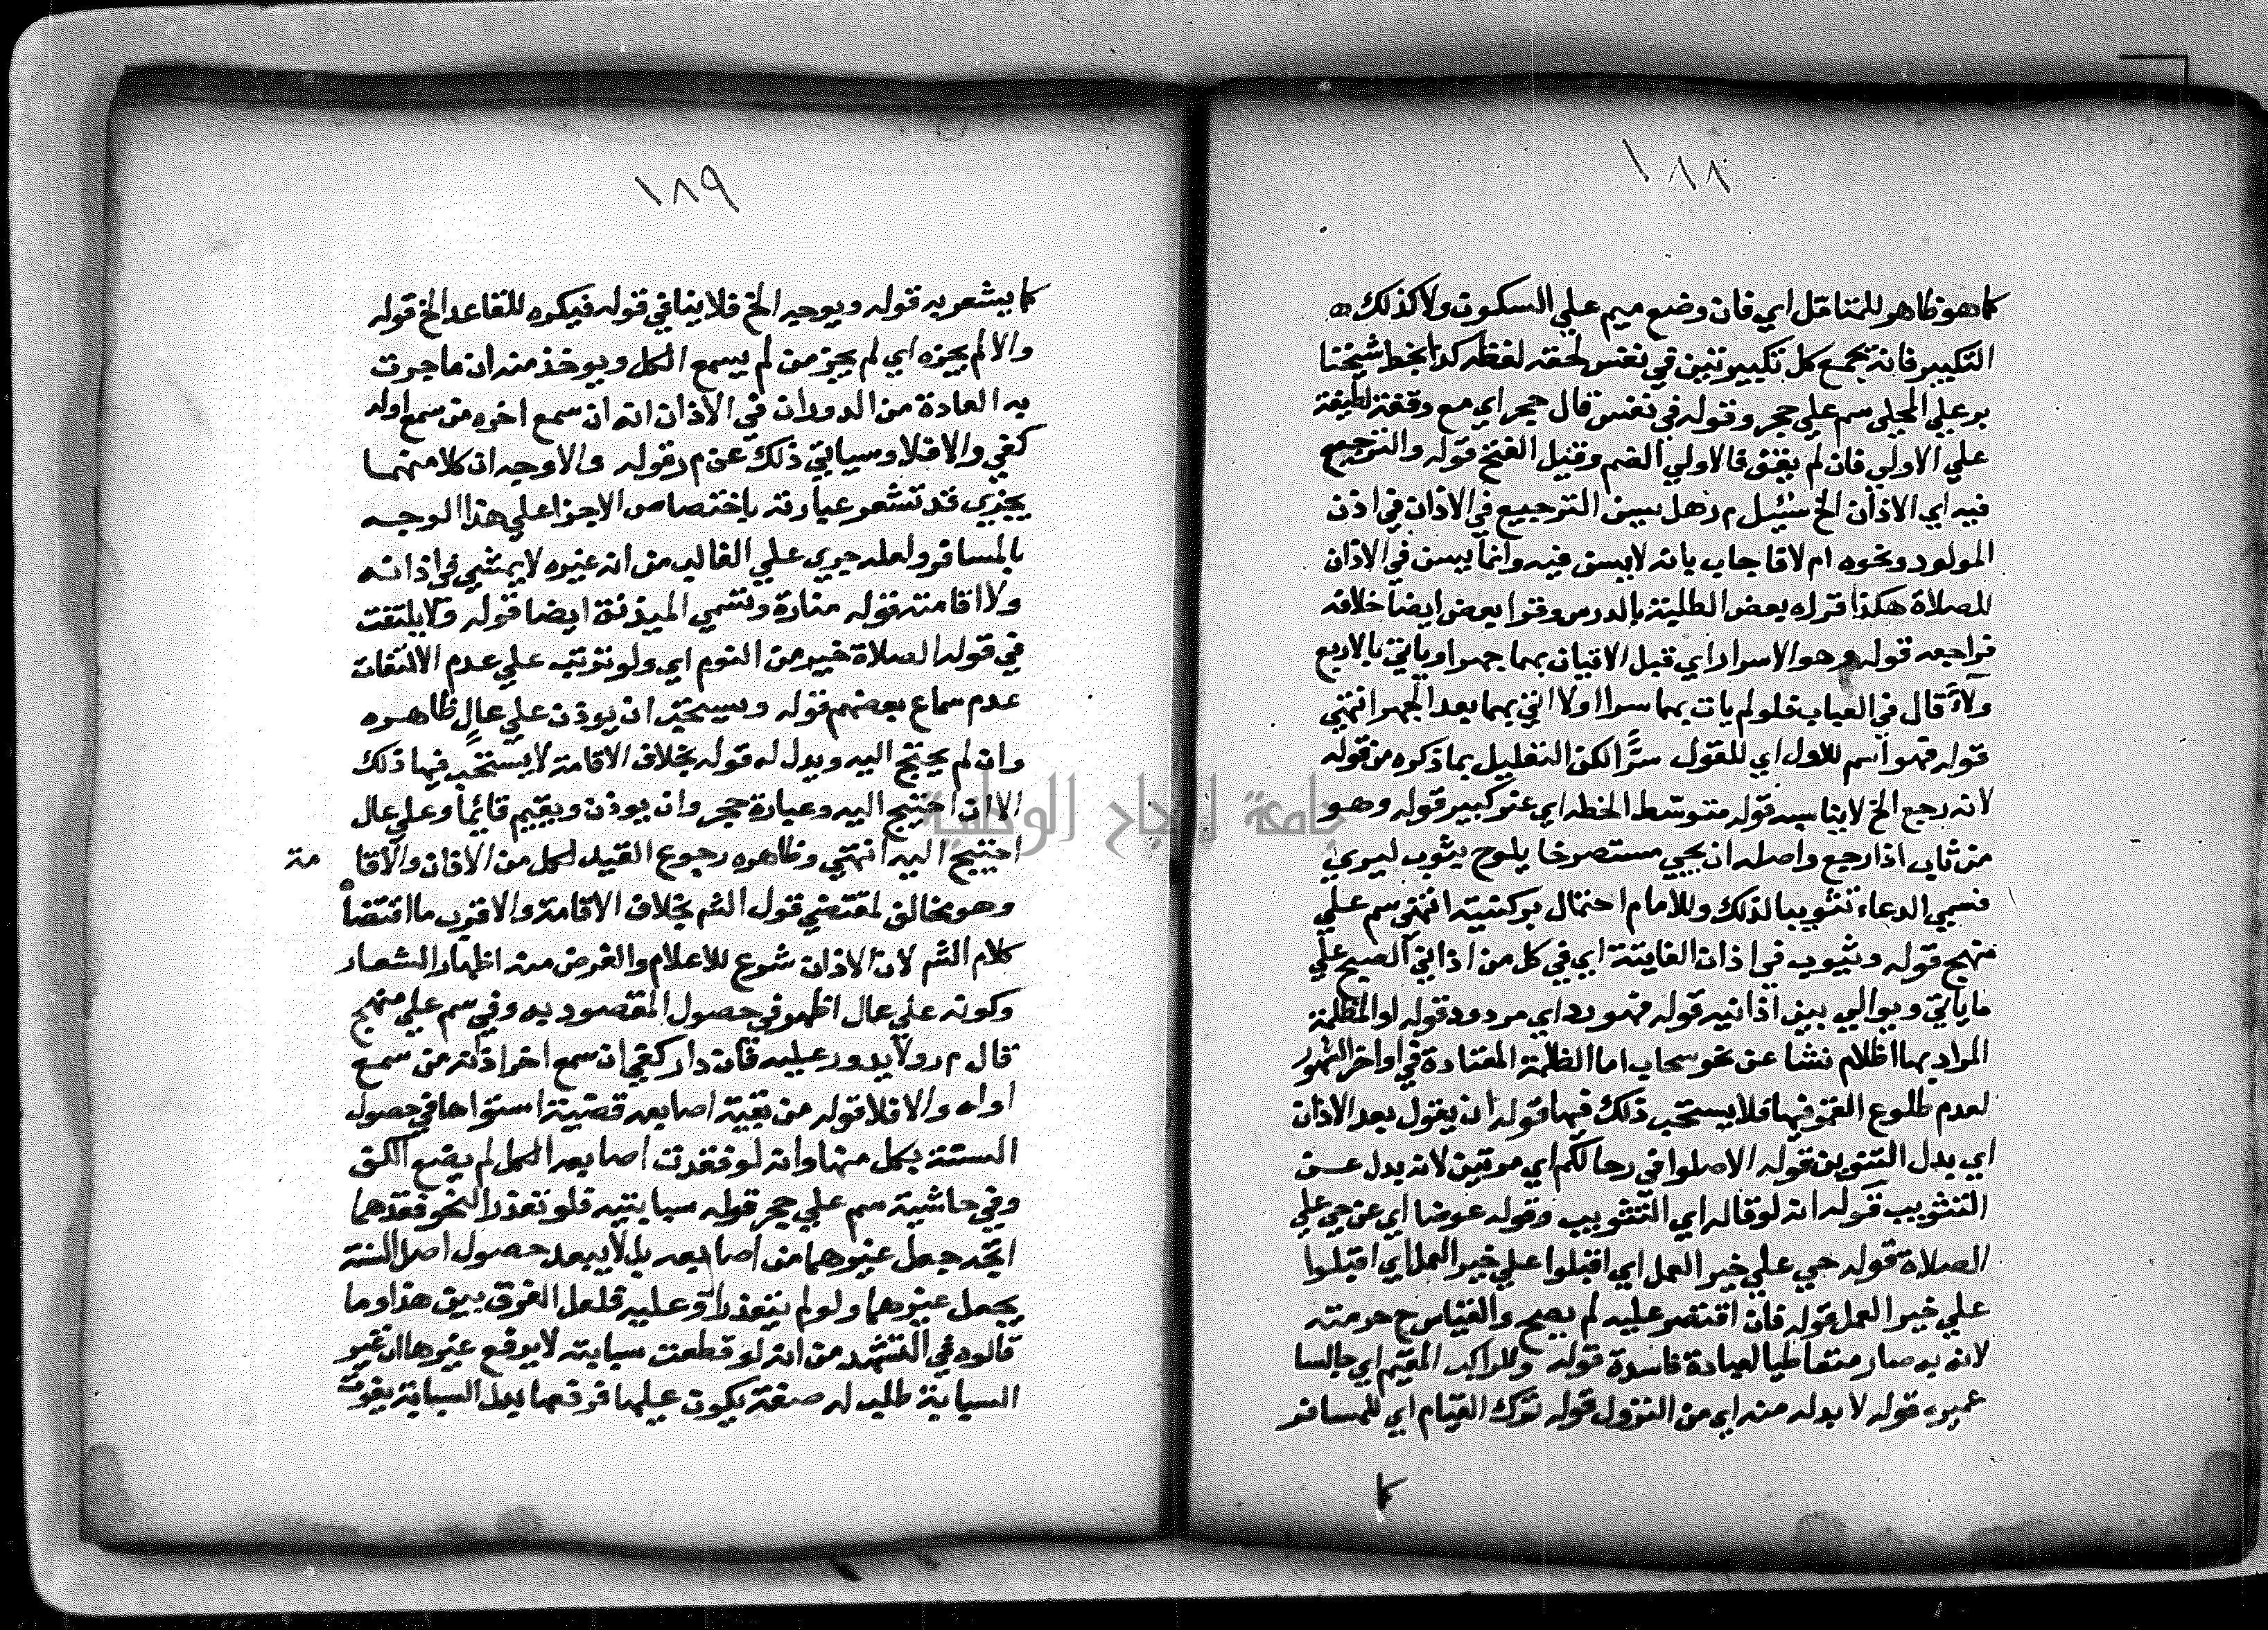 ١٨٨
كما هو ظاهر للمتامل اي فان وضع ميم علي السكون ولا كذلك ه
التكبير فانه يجمع كل تكبيرتين في نفس لحقه لفظه كذا بخط شيخنا
بر علي المحلي سم علي حجر وقوله في نفس قال حجر اي مع وقفة لطيفة
علي الاولي فان لم يقف فالاولي الضم وقيل الفتح قوله والترجيع
فيه اي الاذان الخ سئيل م ر هل يسن الترجيع في الاذان في اذن
المولود ونحوه ام لا فاجاب بانه لا يسن فيه وانما يسن في الاذان
للصلاة هكذا قراه بعض الطلبة بالدرس وقرا بعض ايضا خلافه
فراجعه قوله وهو الاسرار اي قبل الاتيان بهما جهرا وياتي بالاربع
ولاء قال في العباب فلو لم يات بهما سرا اولا اتي بهما بعد الجهر انتهي
قوله فهو اسم للاول اي للقول سرا لكن التعليل بما ذكره من قوله
لانه رجع الخ لا يناسبه قوله متوسط الخطه اي غير كبير قوله وهو
من ثاب اذا رجع واصله ان يجي مستصرخا يلوح بثوب ليري
فسمي الدعاء تثويبا لذلك وللامام احتمال بركنيته انتهي سم علي
منهج قوله ويثوب في اذان الفايتة اي في كل من اذاني الصبح علي
ما ياتي ويوالي بين اذانيه قوله فهو رد اي مردود قوله او المظلمة
المراد بها اظلام نشا عن نحو سحاب اما الظلمة المعتادة في اواخر الشهور
لعدم طلوع القمر فيها فلا يستحب ذلك فيها قوله ان يقول بعد الاذان
اي بدل التثويب قوله الا صلوا في رحالكم اي مرتين لانه بدل عن
التثويب قوله انه لو قاله اي التثويب وقوله عوضا اي عن حي علي
الصلاة قوله حي علي خير العمل اي اقبلوا علي خير العمل اي اقبلوا
علي خير العمل قوله فان اقتصر عليه لم يصح والقياس ح حرمته
لانه به صار متعاطيا لعبادة فاسدة قوله وللراكب المقيم اي جالسا
غيره قوله لا بد له منه اي من النزول قوله ترك القيام اي للمسافر
كما
١٨٩
كما يشعر به قوله ويوجه الخ فلا ينافي قوله فيكره للقاعد الخ قوله
والا لم يجزه اي لم يجز من لم يسمع الكل ويوخذ منه ان ما جرت
به العادة من الدوران في الاذان انه ان سمع اخره من سمع اوله
كفي والا فلا وسياتي ذلك عن م ر قوله والاوجه ان كلا منهما
يجزي قد تشعر عبارته باختصاص الاجزا علي هذا الوجه
بالمسافر ولعله جري علي الغالب من ان غيره لا يمشي في اذانه
ولا اقامته قوله منارة وتسمي الميذنة ايضا قوله ولا يلتفت
في قوله الصلاة خير من النوم اي ولو ترتب علي عدم الالتفات
عدم سماع بعضهم قوله ويستحب ان يوذن علي عال ظاهره
وان لم يحتج اليه ويدل له قوله بخلاف الاقامة لا يستحب فيها ذلك
الا ان احتيج اليه وعبارة حجر وان يوذن ويقيم قايما وعلي عال
احتيج اليه انتهي وظاهره رجوع القيد لكل من الاذان والاقا مة
وهو مخالف لمقتضي قول الشم بخلاف الاقامة والاقرب ما اقتضاه
كلام الشم لان الاذان شرع للاعلام والغرض منه اظهار الشعار
وكونه علي عال اظهر في حصول المقصود به وفي سم علي منهج
قال م ر ولا يدور عليه فان دار كفي ان سمع اخر اذانه من سمع
اوله والا فلا قوله من بقية اصابعه قضيته استواها في حصول
السنة بكل منها وانه لو فقدت اصابعه الكل لم يضع الكف
وفي حاشية سم علي حجر قوله سبابتيه فلو تعذر النحو فقدهما
اتجه جعل غيرهما من اصابعه بل لا يبعد حصول اصل السنة
بجعل غيرهما ولو لم يتعذرا وعليه فلعل الفرق بين هذا وما
قالوه في التشهد من انه لو قطعت سبابته لا يرفع غيرها ان غير
السبابة طلب له صفة يكون عليها فرفعها بدل السبابة يفوت